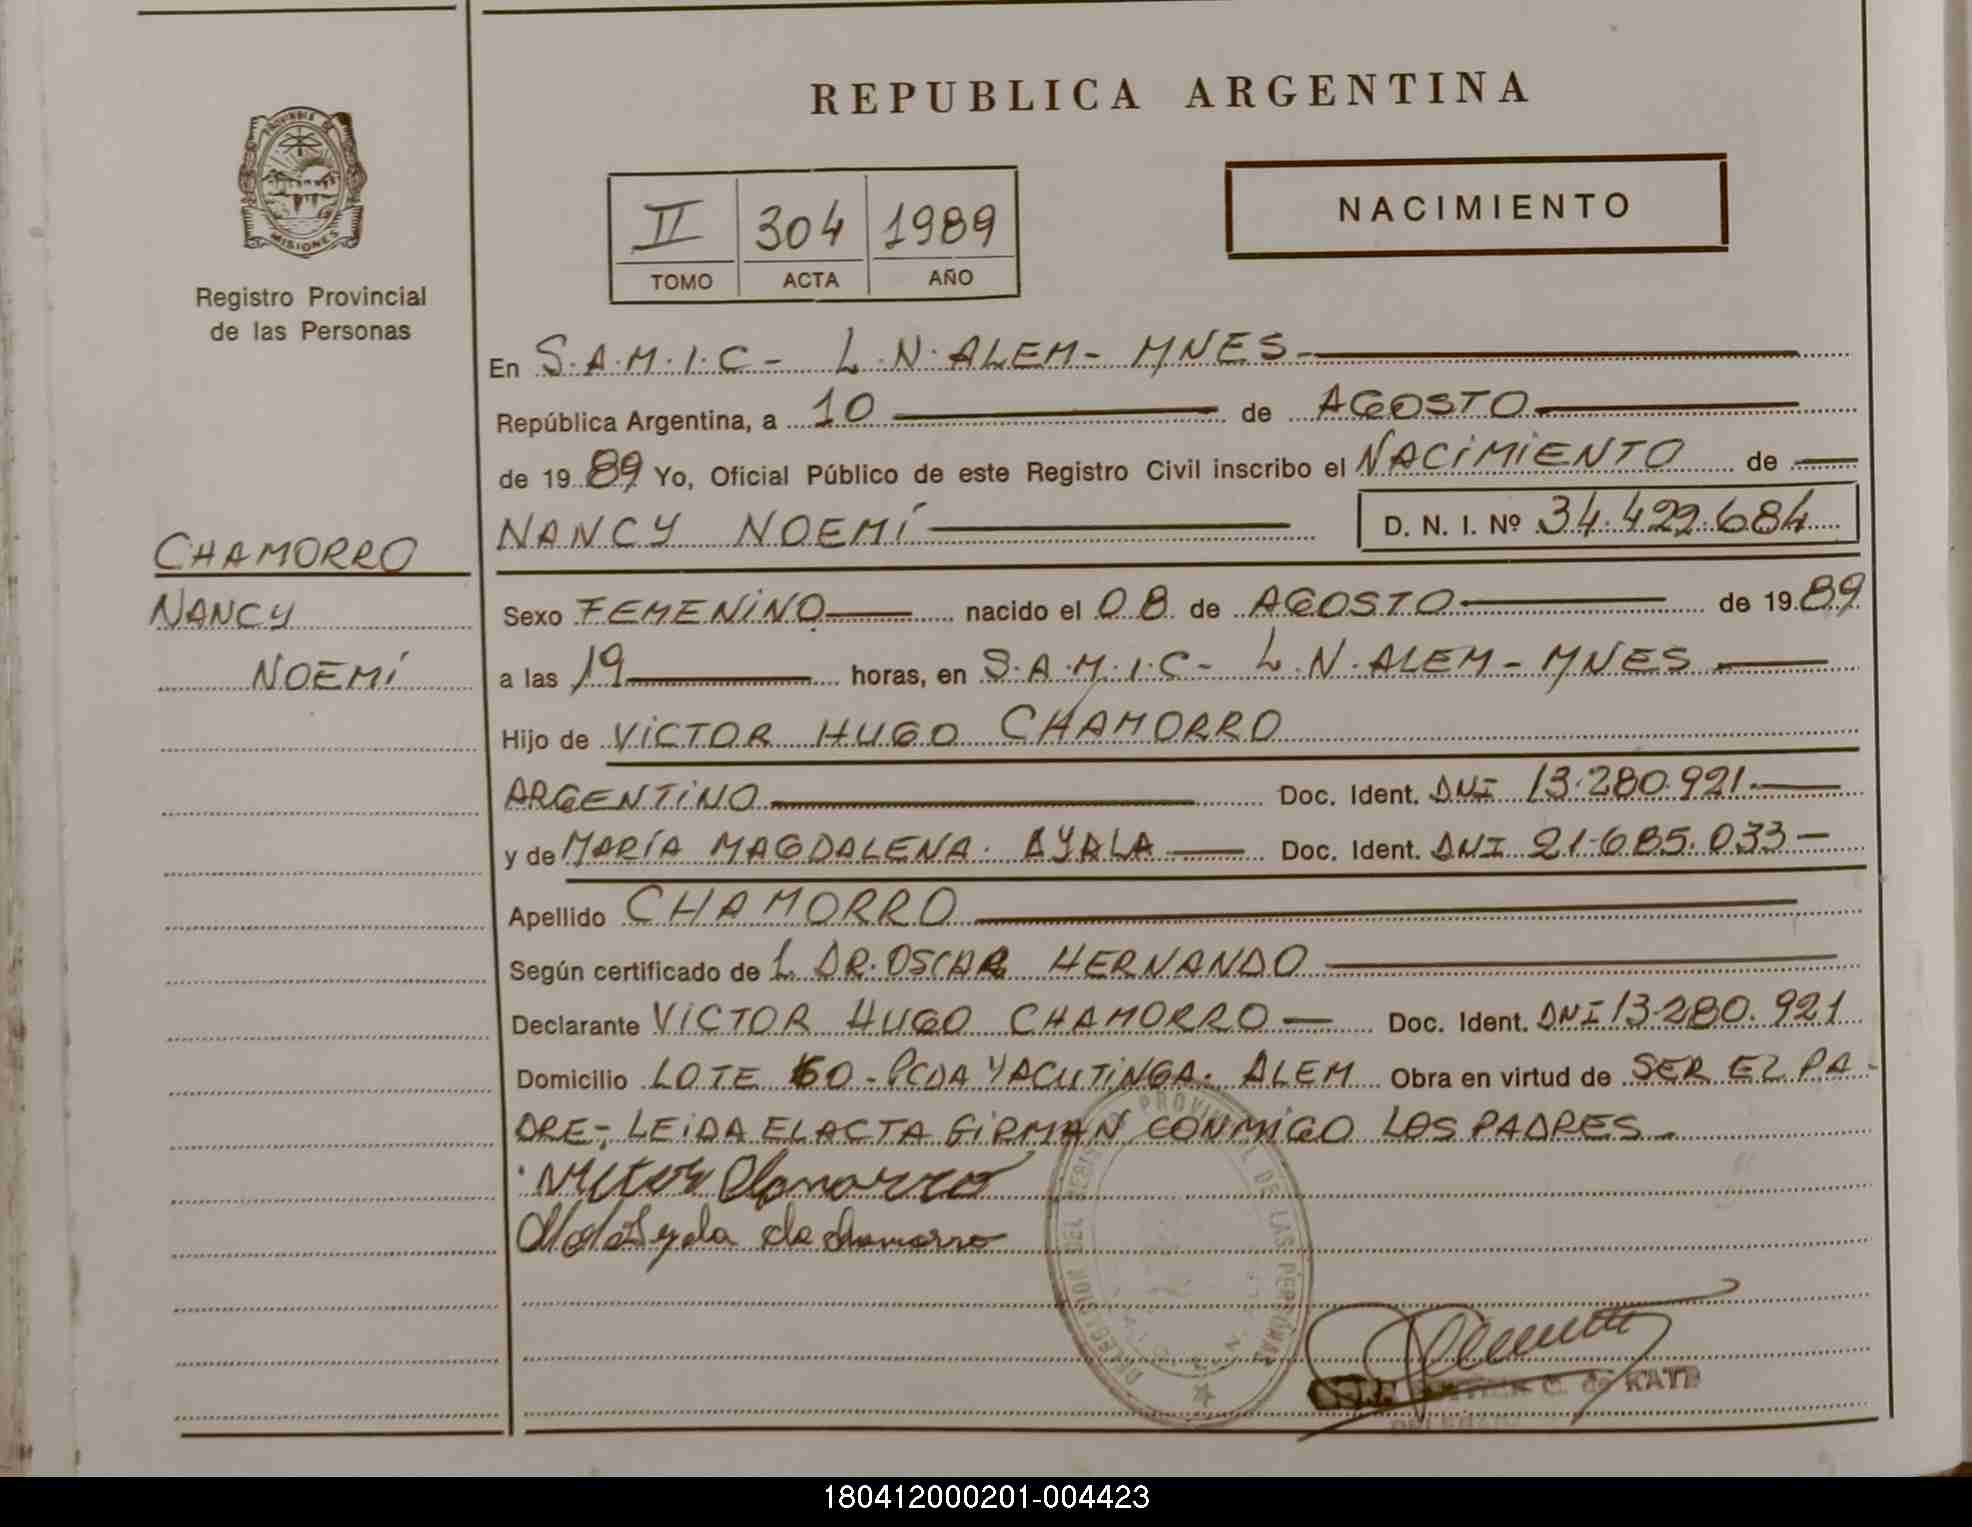 REPUBLICA ARGENTINA
PROVINCIA DE
MISIONES
Registro Provincial
de las Personas
II 304 1989
TOMO ACTA AÑO
NACIMIENTO
En S.A.M.I.C - L.N.ALEM - MNES -
República Argentina, a 10 de AGOSTO
de 1989 Yo, Oficial Público de este Registro Civil inscribo el NACIMIENTO de
NANCY NOEMÍ D. N. I. Nº 34.422.684
CHAMORRO
NANCY
NOEMÍ
Sexo FEMENINO nacido el 08 de AGOSTO de 1989
a las 19 horas, en S.A.M.I.C - L.N.ALEM - MNES
Hijo de VICTOR HUGO CHAMORRO
ARGENTINO Doc. Ident. DNI 13.280.921.
y de MARÍA MAGDALENA. AYALA Doc. Ident. DNI 21.685.033 -
Apellido CHAMORRO
Según certificado de L. DR. OSCAR HERNANDO
Declarante VICTOR HUGO CHAMORRO Doc. Ident. DNI 13.280.921
Domicilio LOTE 60 - PCDA YACUTINGA. ALEM Obra en virtud de SER EL PA-
DRE-, LEIDA EL ACTA FIRMAN CONMIGO LOS PADRES -
Victor Chamorro
Ayala de Chamorro
DELEGACION DEL REGISTRO PROVINCIAL DE LAS PERSONAS
G. de KATZ
180412000201-004423